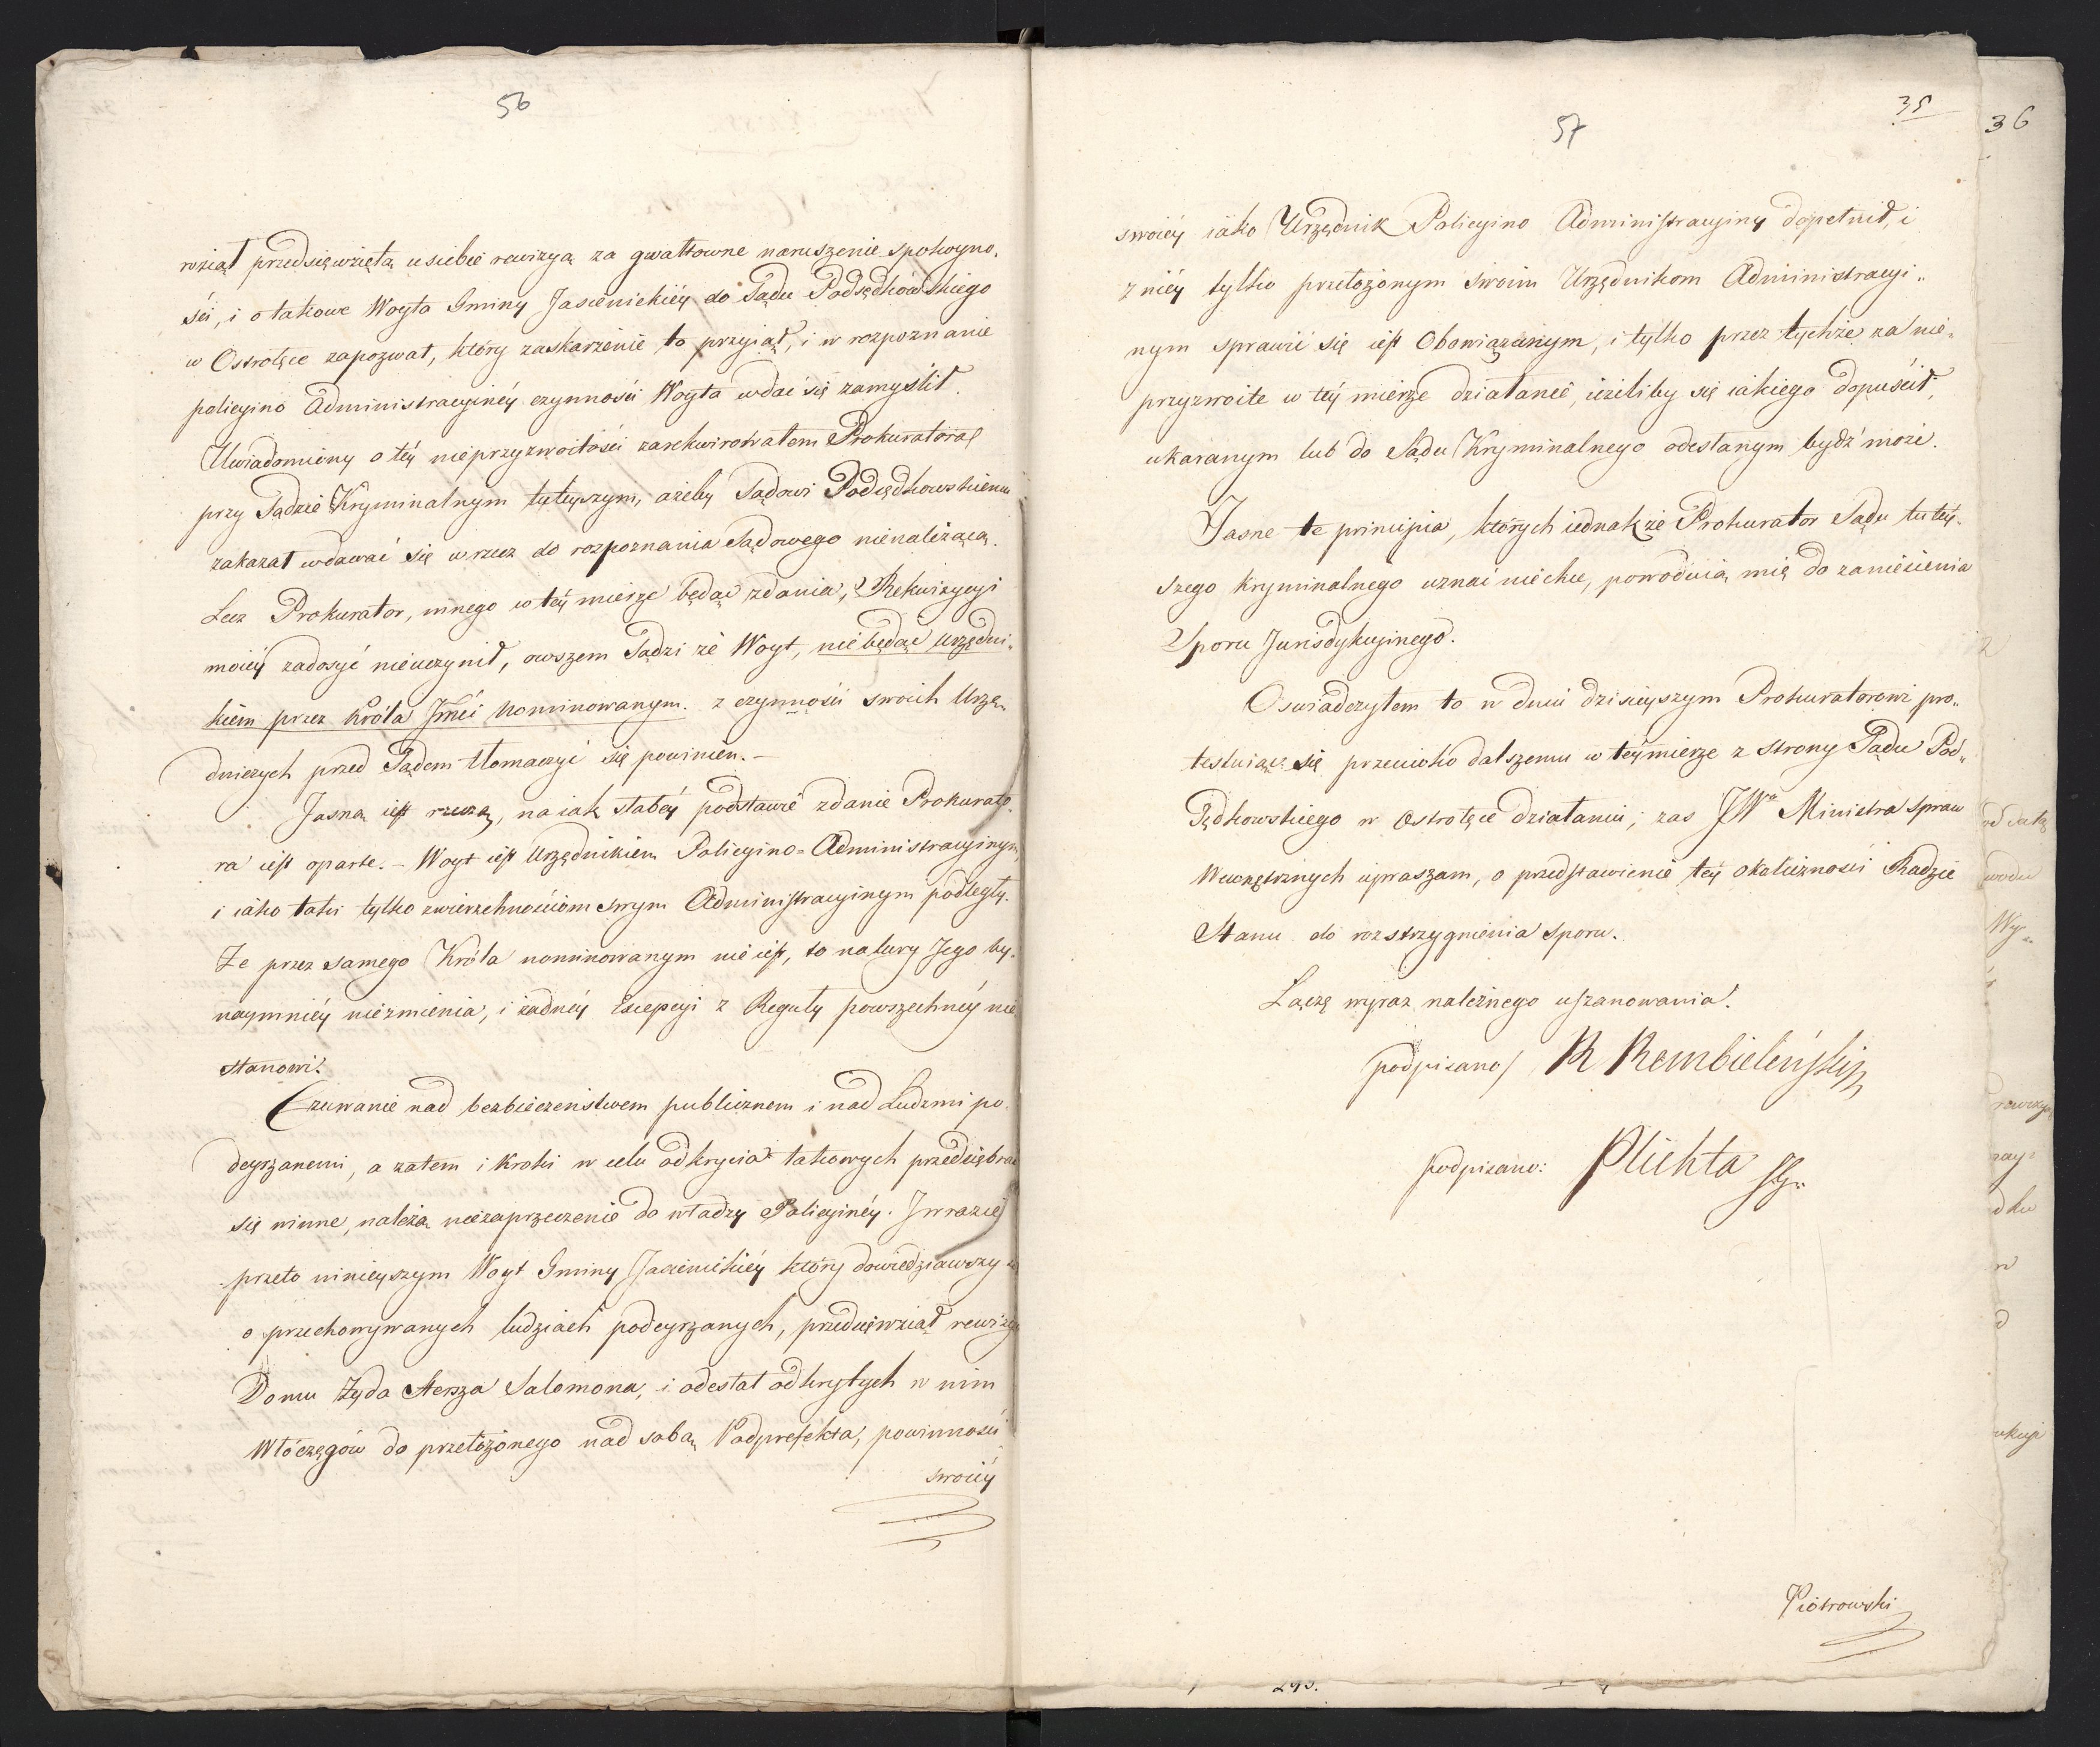 56
wziął przedsięwziętą u siebie rewizyą za gwałtowne naruszenie spokoyno„
ści, i o takowe Woyta Gminy Jasienickiéy do Sądu Podsędkowskiego
w Ostrołęce zapozwał, który zaskarżenie to przyiął, i w rozpoznanie
policyino Administracyinéy czynności Woyta wdać się zamyślił.
Uwiadomiony o téy nieprzyzwoitości zarekwirowałem Prokuratora
przy Sądzie Kryminalnym tuteyszym, ażeby Sądowi Podsędkowskiemu
zakazał wdawać się w rzecz do rozpoznania Sądowego nienależącą.
Lecz Prokurator, innego w téy mierze będąc zdania, Rekwizycyi
moiéy zadosyć nieuczynił, owszem Sądzi że Woyt, nie będąc Urzędni„
kiem przez Króla Jmci Nominowanym. z czynności swoich Urzę„
dniczych przed Sądem tłomaczyć się powinien. —
Jasną iest rzeczą, na iak słabéy podstawie zdanie Prokurato„
ra iest oparte. — Woyt iest Urzędnikiem Policyino=Administracyinym
i iako taki tylko zwierzchnościom swym Administracyinym podległy.
Że przez samego Króla nominowanym nie iest, to natury Jego by„
naymniéy niezmienia, i żadnéy Excepcyi z Reguły powszechnéy nie
stanowi.
Czuwanie nad bezbieczeństwem publicznem i nad Ludźmi po„
deyrzanemi, a zatem i kroki w celu odkrycia takowych przedsiębrać
się winne, należą niezaprzeczenie do władzy Policyinéy. J w razie
przeto ninieyszym Woyt Gminy Jasienickiéy który dowiedziawszy się
o przechowywanych ludziach podeyrzanych, przedsięwziął rewizyą
Domu Żyda Herszа Salomona, i odesłał odkrytych w nim
Włóczęgów do przełożonego nad sobą Podprefekta, powinności
swoiéy
35
57
swoiéy iako Urzędnik Policyino Administracyiny dopełnił, i
z niéy tylko przełożonym swoim Urzędnikom Administracyi„
nym sprawić się iest Obowiązanym, i tylko przez tychże za nie„
przyzwoite w téy mierze działanie, ieżeliby się iakiego dopuścił,
ukaranym lub do Sądu Kryminalnego odesłanym bydź może.
Jasne te principia, których iednakże Prokurator Sądu tutéy„
szego Kryminalnego uznać niechce, powoduią mię do zaniesienia
Sporu Jurisdykcyinego.
Oświadczyłem to w dniu dzisieyszym Prokuratorowi pro„
testuiąc się przeciwko dalszemu w téy mierze z strony Sądu Pod„
Sędkowskiego w Ostrołęce działaniu; zaś JWo Ministra Spraw
Wewnętrznych upraszam, o przedstawienie téy okoliczności Radzie
Stanu do rozstrzygnienia Sporu.
Łączę wyraz należnego uszanowania.
podpisano/ R Rembieleński
podpisano: Plichta
Piotrowski
36